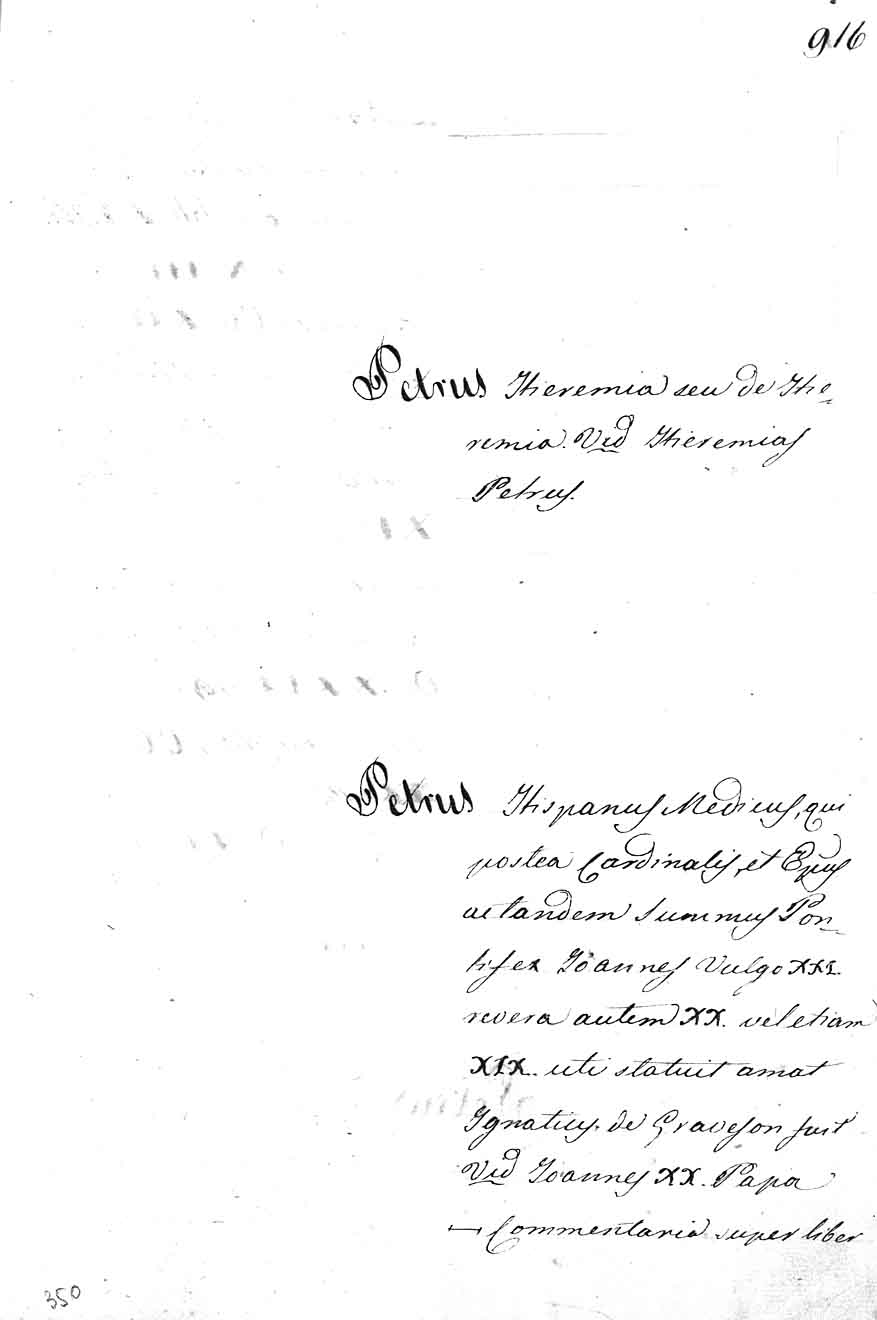 916
Petrus Hieremia seu de Hie-
remia. Vid Hieremias
Petrus.
Petrus Hispanus Medicus, qui
postea Cardinalis, et Epus
ac tandem Summus Pon-
tifex Joannes Vulgo XXI.
revera autem XX. vel etiam
XIX. uti statuit amat
Ignatius de Graveson fuit
Vid Joannes XX. Papa
— Commentaria super liber
350